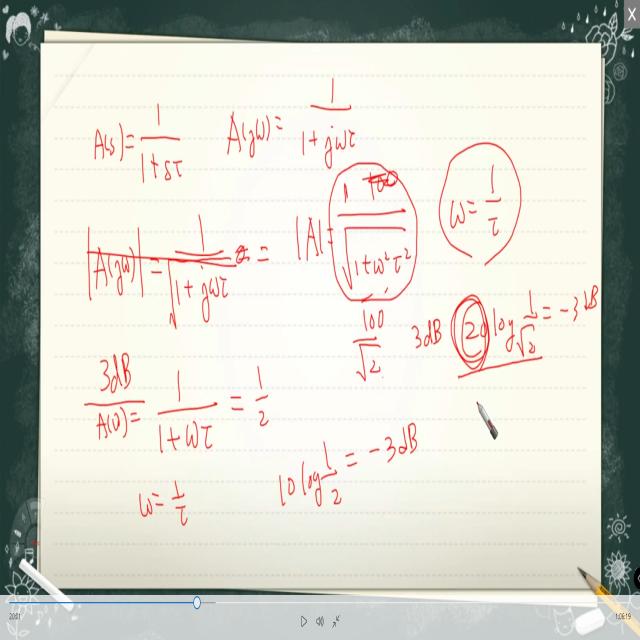 A(s)= 1/(1+sτ)
A(jω)= 1/(1+jωτ)
|A(jω)| = 1/√(1+jωτ) =
|A|= 1/√(1+ω²τ²)
100/√2
ω= 1/τ
3dB 20 log 1/√2 = -3dB
3dB
A(0)= 1/(1+ωτ) = 1/2
10 log 1/2 = -3dB
ω= 1/τ
20:01
1:06:19